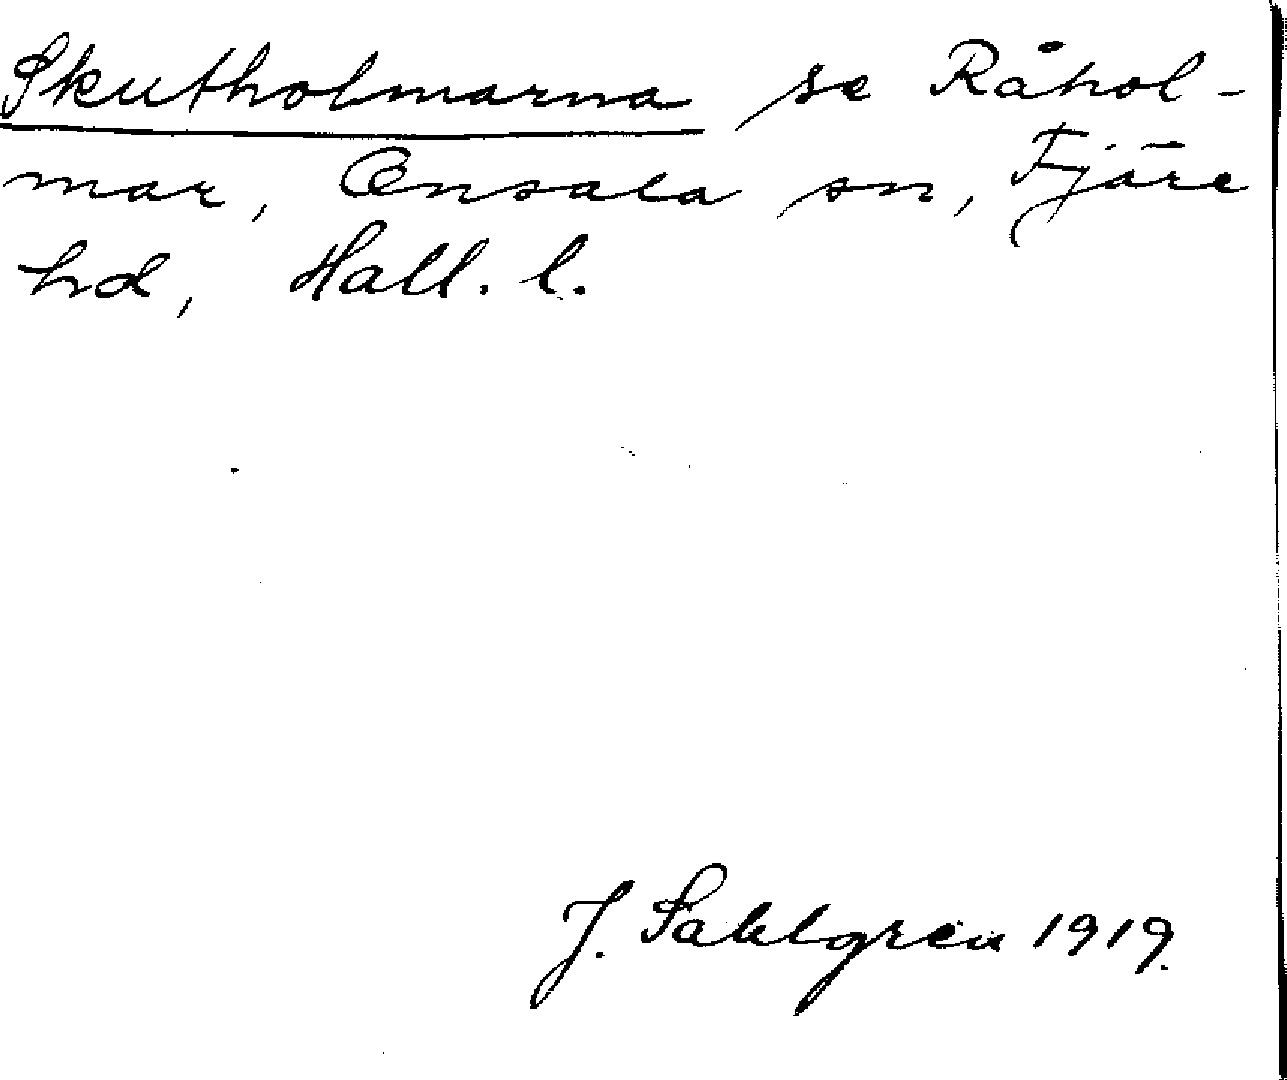 Skutholmarna se Råhol-
mar, Onsala sn, Fjäre
hd, Hall. l.
J. Sahlgren 1919.